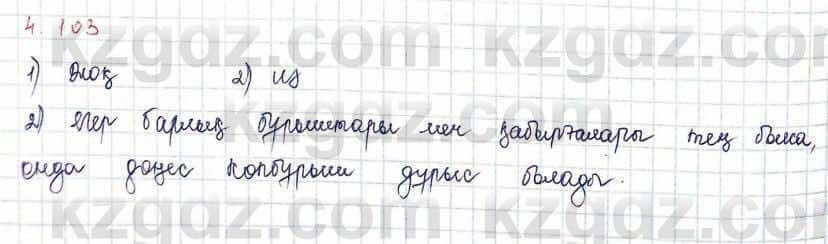 4. 103
1) жоқ 2) иә
2) егер барлық бұрыштары мен қабырғалары тең болса,
онда дөңес көпбұрыш дұрыс болады.
kzgdz.com kzgdz.com
kzgdz.com kzgdz.com
kzgdz.com kzgdz.com